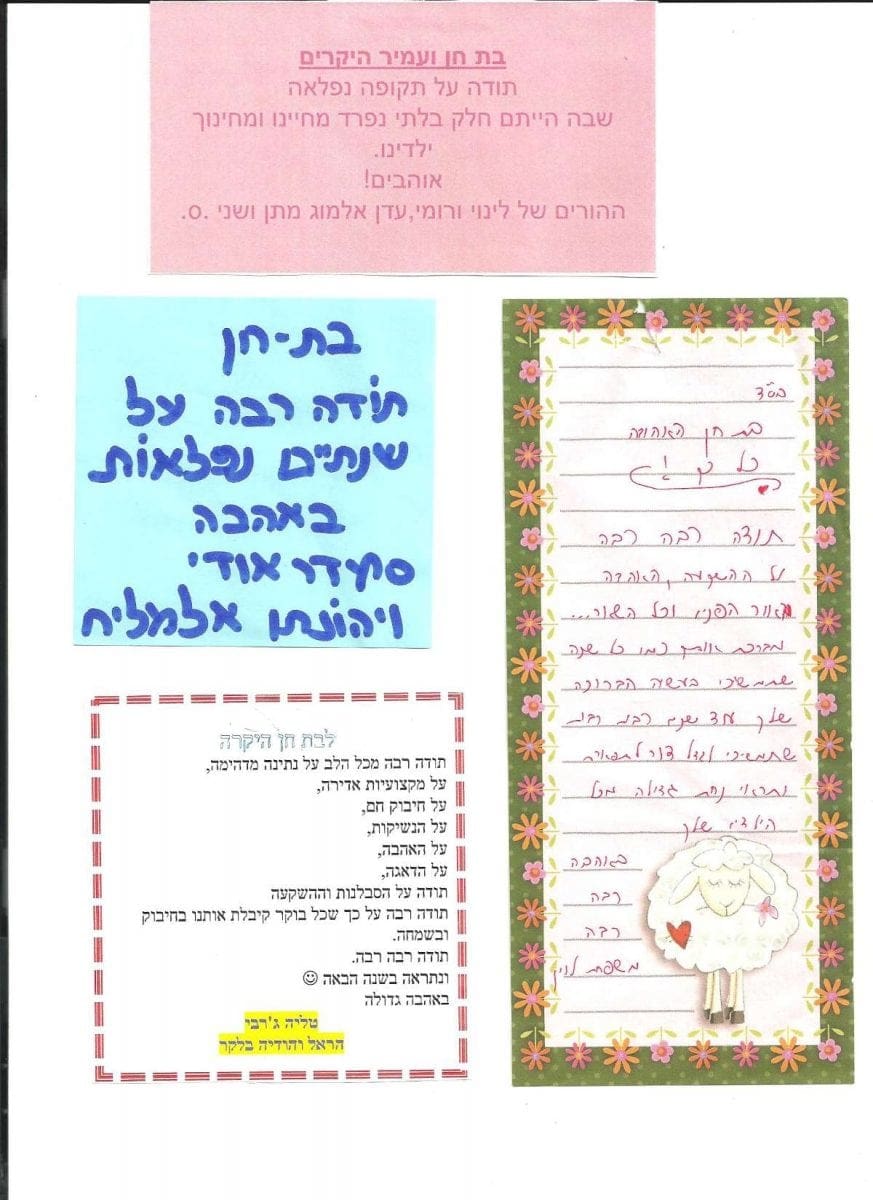 בת חן ועמיר היקרים
תודה על תקופה נפלאה
שבה הייתם חלק בלתי נפרד מחיינו ומחינוך
ילדינו.
אוהבים!
ההורים של לינוי ורומי,עדן אלמוג מתן ושני .o.
בת-חן
תודה רבה על
שנתיים נפלאות
באהבה
סתיו אודי
ויהונתן אלמליח
לבת חן היקרה
תודה רבה מכל הלב על נתינה מדהימה,
על מקצועיות אדירה,
על חיבוק חם,
על הנשיקות,
על האהבה,
על הדאגה,
תודה על הסבלנות וההשקעה
תודה רבה על כך שכל בוקר קיבלת אותנו בחיבוק
ובשמחה.
תודה רבה רבה.
ונתראה בשנה הבאה ☺
באהבה גדולה
טליה ג'רבי
הראל והודיה בלקר
בס"ד
בת חן האהובה
תודה רבה רבה
על ההשקעה, האהבה
מאור הפנים וכל השאר...
מברכת אותך כמו כל שנה
שתמשיכי בעשיה הברוכה
שלך עוד שנים רבות רבות
שתמשיכי לגדל דור לתפארת
ותראי נחת גדולה מכל
הילדים שלך
באהבה
רבה
רבה
משפחת לוין